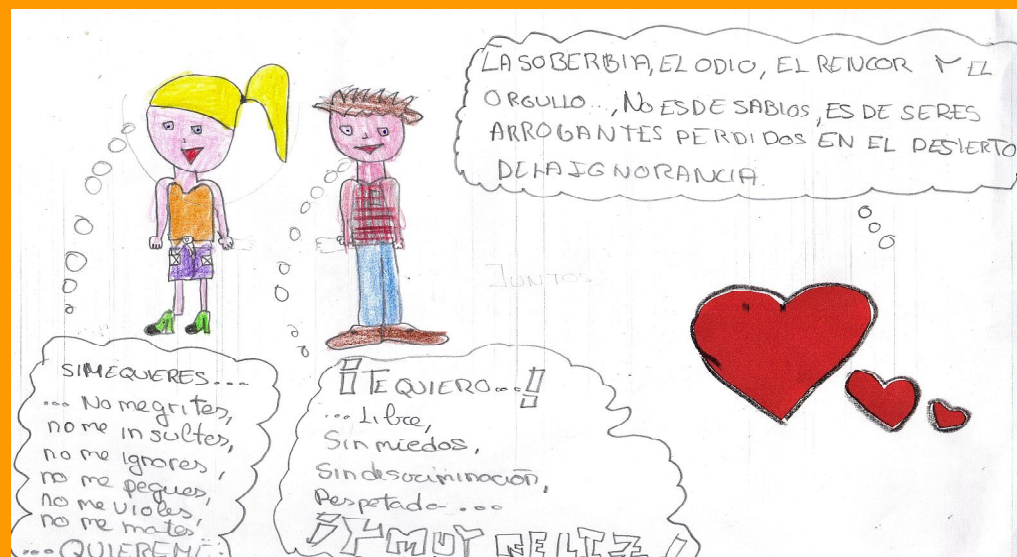 LA SOBERBIA, EL ODIO, EL RENCOR Y EL
ORGULLO..., NO ES DE SABIOS, ES DE SERES
ARROGANTES PERDIDOS EN EL DESIERTO
DE LA IGNORANCIA.
JUNTOS
SI ME QUIERES...
... No me grites,
no me insultes,
no me ignores,
no me pegues,
no me violes,
no me mates
... QUIEREME
¡¡TE QUIERO...!!
... Libre,
Sin miedos,
Sin discriminación,
Respetada ...
¡Y MUY FELIZ!